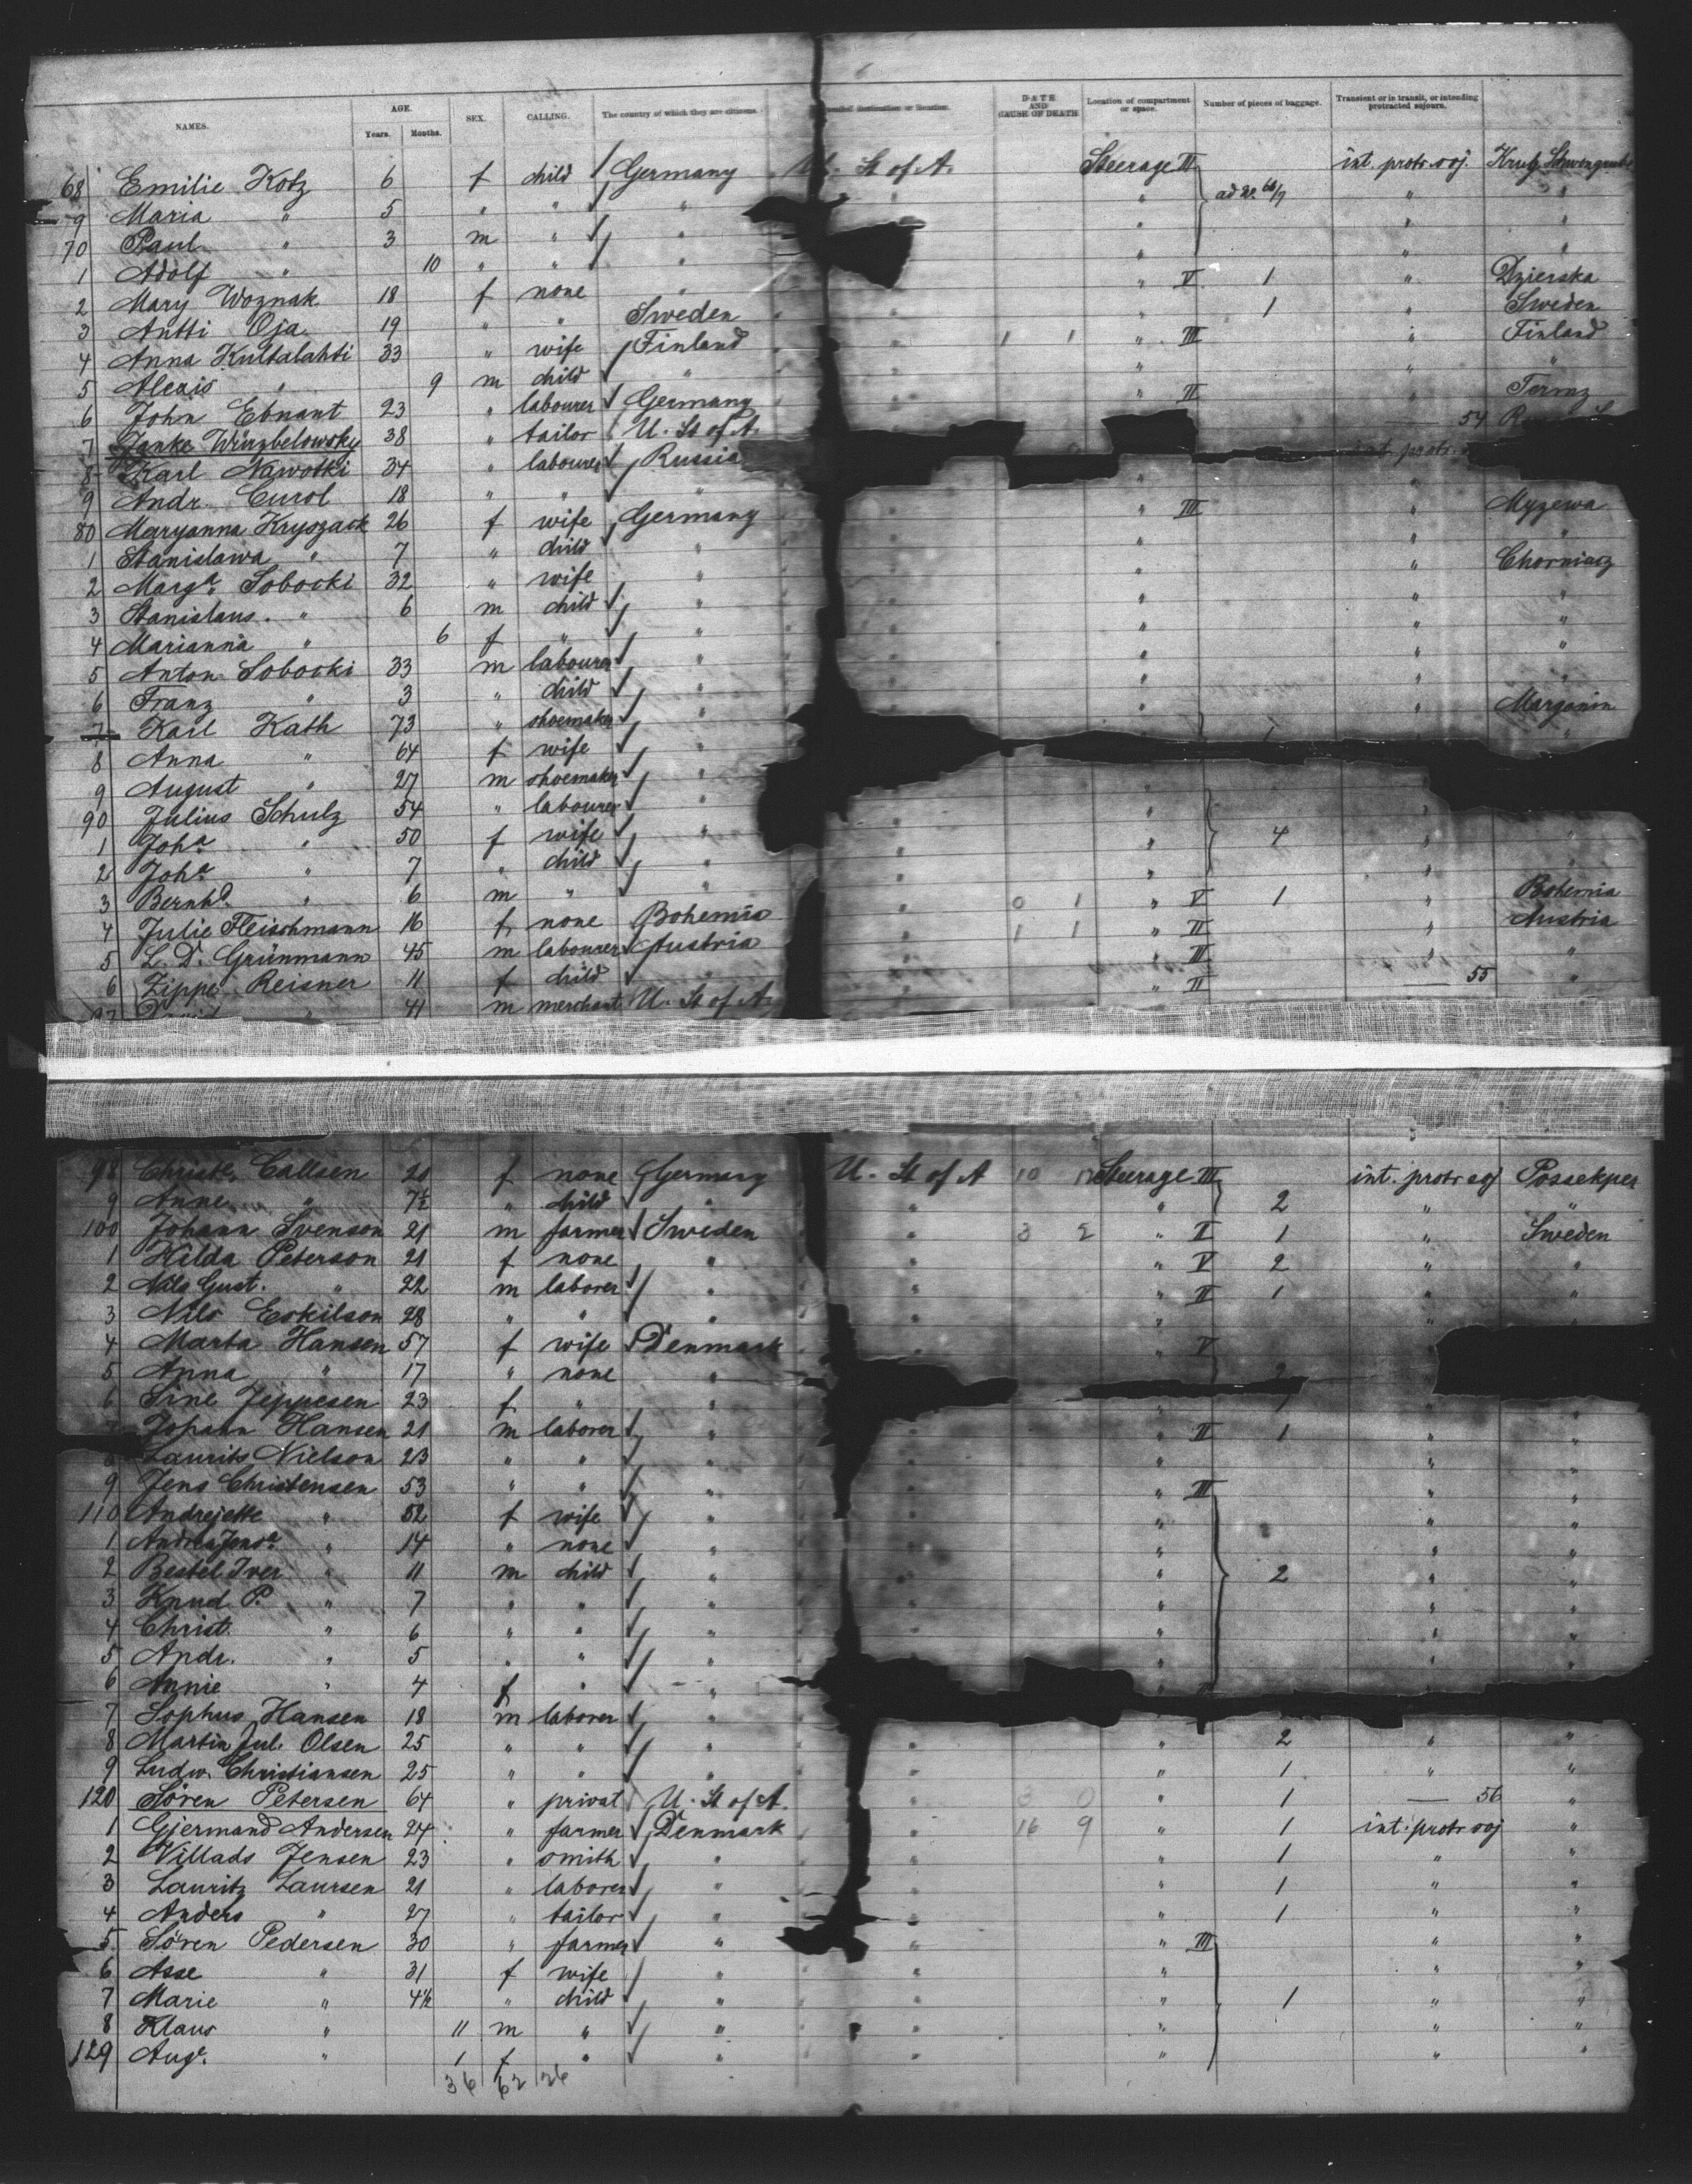 NAMES. AGE. Years. Months. SEX. CALLING. The country of which they are citizens. destination or location. DATE AND CAUSE OF DEATH Location of compartment or space. Number of pieces of baggage. Transient or in transit, or intending protracted sojourn.
68 Emilie Kotz 6 f child Germany U. St of A. Steerage II int. protr. soj.
9 Maria " 5 " " " " " ad No 66/7 " "
70 Paul " 3 m " " " " "
1 Adolf " 10 " " " " " "
2 Mary Woznak 18 f none " " " V 1 " Dzierska
3 Antti Oja 19 " " Sweden " " 1 " Sweden
4 Anna Kultalahti 33 " wife Finland " 1 1 " III " Finland
5 Alexis " 9 m child " " " " "
6 John Ebnant 23 " labourer Germany " " II "
7 Janke Wirzbelowsky 38 " tailor U. St of A. 54
8 Karl Nawotki 34 " labourer Russia int. protr.
9 Andr. Curol 18 " " " " " "
80 Maryanna Kryszack 26 f wife Germany " " III " Myzewa
1 Stanislawa " 7 " child " " " " "
2 Marga. Sobocki 32 " wife " " " " Chorniacz
3 Stanislaus. " 6 m child " " " " "
4 Marianna " 6 f " " " " " "
5 Anton Sobocki 33 m labourer " " " " "
6 Franz " 3 " child " " " " "
7 Karl Kath 73 " shoemaker " " Margonin
8 Anna " 64 f wife " 1 "
9 August " 27 m shoemaker "
90 Julius Schulz 54 " labourer " " " "
1 Joha. " 50 f wife " " " 4 " "
2 Joha. " 7 " child " " " " "
3 Bernhd. " 6 m " " " " "
4 Julie Fleischmann 16 f none Bohemia " 0 1 " V 1 " Bohemia
5 L. D. Grünmann 45 m labourer Austria " 1 1 " II " Austria
6 Zippe Reisner 11 f child " " III " "
97 " 41 m merchant U. St of A. " II 55 "
98 Christe. Callsen 20 f none Germany U. St of A 10 12 Steerage III int. protr soj Possekper
9 Anne " 7½ " child " " " 2 " "
100 Johann Svenson 21 m farmer Sweden " 3 2 " II 1 " Sweden
1 Hilda Peterson 21 f none " " " V 2 " "
2 Nils Gust. " 22 m laborer " " " II 1 " "
3 Nils Eskilson 28 " " " " " "
4 Marta Hansen 57 f wife Denmark " " V
5 Anna " 17 " none " 2
6 Sine Jeppesen 23 f " " " " 1 " "
7 Johann Hansen 21 m laborer " " " II 1 " "
8 Laurits Nielson 23 " " " " " " "
9 Jens Christensen 53 " " " " " III " "
110 Andrejette " 52 f wife " " " " "
1 Andrea Jensa. " 14 " none " " " " "
2 Bestel Iver " 11 m child " " " 2 " "
3 Knud P. " 7 " " " " " " "
4 Christ. " 6 " " " " " " "
5 Andr. " 5 " " " " " "
6 Annie " 4 f " "
7 Sophus Hansen 18 m laborer "
8 Martin Jul. Olsen 25 " " " " " 2 " "
9 Ludw. Christiansen 25 " " " " " 1 " "
120 Sören Petersen 64 " privat U. St of A. " 3 0 " 1 56 "
1 Gjermand Andersen 24 " farmer Denmark " 16 9 " 1 int. protr soj "
2 Villads Jensen 23 " smith " " " 1 " "
3 Lauritz Laursen 21 " laborer " " " 1 " "
4 Anders " 27 " tailor " " " 1 " "
5 Sören Pedersen 30 " farmer " " " III " "
6 Asse " 31 f wife " " " " "
7 Marie " 4½ " child " " " 1 " "
8 Klaus " 11 m " " " " " "
129 Auge. " 1 f " " " " " "
36 62 26